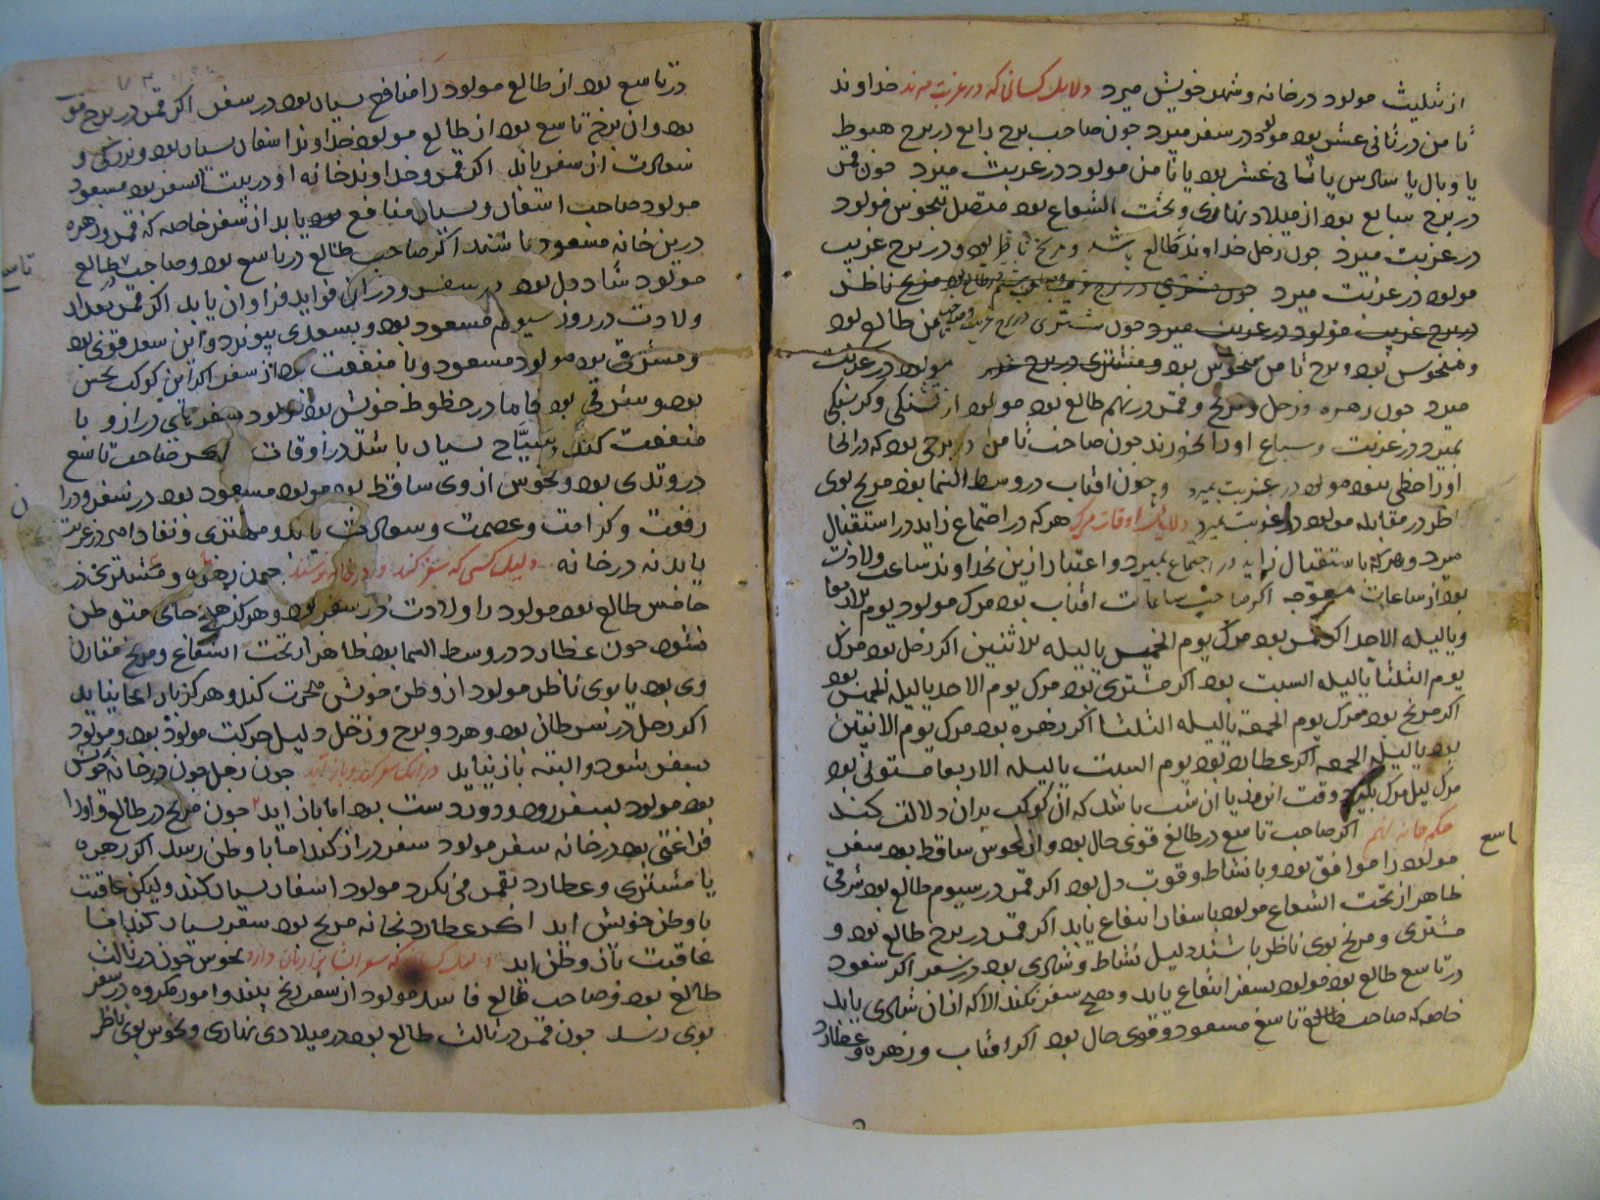 از تثلیث مولود در خانه و شهر خویش میرد دلایل کسانی که در غربت میرند خداوند
ثامن در ثانی عشر بود مولود در سفر میرد جون صاحب برج رابع در برج هبوط
یا وبال یا سادس یا ثانی عشر بود یا ثامن مولود در غربت میرد جون قمر
در برج سابع بود از میلاد نهاری و تحت الشعاع بود متصل بنحوس مولود
در غربت میرد جون زحل خداوند طالع باشد و مریخ ناظر بود و در برج غریب
مولود در غربت میرد جون مشتری در برج مریخ ناظر
در برج غریب مولود در غربت میرد جون مشتری در برج غریب من طالع بود
و منحوس بود و برج ثامن منحوس بود و مشتری در برج مولود در غربت
میرد جون زهره و زحل و مریخ و قمر در نهم طالع بود مولود از تشنگی و گرسنگی
بمیرد در غربت و سباع او را بخورند جون صاحب ثامن در برجی بود که در انجا
او را حظی نبود مولود در غربت بمیرد و جون افتاب در وسط السما بود مریخ بوی
ناظر در مقابله مولود در غربت بمیرد دلایل اوقات مرگ هر که در اجتماع زاید در استقبال
میرد و هر که باستقبال زاید در اجتماع بمیرد و اعتبار ازین بخداوند ساعت ولادت
بود از ساعات معوجه اگر صاحب ساعات افتاب بود مرگ مولود یوم
و یا لیله الاحد اگر قمر بود مرگ یوم الخمیس یا لیله للاثنین اگر زحل بود مرگ
یوم الثلثا یا لیله السبت بود اگر مشتری بود مرگ یوم الاحد یا لیله الخمیس بود
اگر مریخ بود مرگ یوم الجمعه یا لیله الثلثا اگر زهره بود مرگ یوم الاثنین
بود یا لیله الجمعه اگر عطارد بود یوم السبت یا لیله الاربعا مستولی بود
مرگ وقت باشد که ان کوکب بدان دلالت کند
حکم خانه نهم اگر صاحب تاسع در طالع قوی حال بود و از نحوس ساقط بود سفر
تاسع
مولود را موافق بود و با نشاط و قوت دل بود اگر قمر در سیوم طالع بود شرقی
ظاهر از تحت الشعاع مولود باسفار انتفاع یابد اگر قمر در برج طالع بود و
مشتری و مریخ بوی ناظر باشند دلیل نشاط و شادی بود در سفر اگر سعود
در تاسع طالع بود مولود بسفر انتفاع یابد و هیچ سفر نکند الا که از ان شادی یابد
خاصه که صاحب طالع تاسع مسعود و قوی حال بود اگر افتاب و زهره و عطارد
در تاسع بود از طالع مولود را منافع بسیار بود در سفر اگر قمر در برج
بود و ان برج تاسع بود از طالع مولود خداوند اسفار بسیار بود و بزرگی و
سعادت از سفر یابد اگر قمر و خداوند خانه او در بیت السفر بود مسعود
مولود صاحب اسفار و بسیار منافع بود یابد از سفر خاصه که قمر و زهره
درین خانه مسعود باشند اگر صاحب طالع در تاسع بود و صاحب طالع
تاسع
مولود شاد دل بود در سفر و در ان فواید فراوان یابد اگر قمر بعد از
ولادت در روز سیوم مسعود بود و بسعدی پیوندد و این سعد قوی بود
و مشرقی بود مولود مسعود و با منفعت بود از سفر اگر این کوکب نحس
بود و شرقی بود و اما در حظوظ خویش بود مولود سفرهای دراز و با
منفعت کند و سیاح بسیار باشد در اوقات اگر صاحب تاسع
در وتدی بود و نحوس از وی ساقط بود مولود مسعود بود در سفر و در ا
رفعت و کرامت و عصمت و سعادت یابد و مهتری و نفاد امر در غربت
یابد نه در خانه دلیل کسی که سفر کند و در خانه جون زهره و مشتری در
خامس طالع بود مولود را ولادت در سفر بود و هرگز جای متوطن
نشود جون عطارد در وسط السما بود ظاهر از تحت الشعاع و مریخ مقارن
وی بود یا بوی ناظر مولود از وطن خویش هجرت کند و هرگز باز انجا نیاید
اگر زحل در سرطان بود و هر دو برج و زحل دلیل حرکت مولود بود و مولود
بسفر شود و البته باز نیاید در انک سفر کند و باز اید جون زحل جون در خانه خویش
بود مولود بسفر رود و دست بود اما باز اید جون مریخ در طالع و او را
فراغتی بود در خانه سفر مولود سفر دراز کند اما با وطن رسد اگر زهره
یا مشتری و عطارد بقمر می نگرد مولود اسفار بسیار کند ولیکن عاقبت
با وطن خویش اید اگر عطارد بخانه مریخ بود سفر بسیار کند اما
عاقبت باز وطن اید دلیل کسانی که سفر ایشان را زیان دارد نحوس جون در ثالث
طالع بود و صاحب طالع فاسد مولود از سفر رنج بیند و امور مکروه در سفر
بوی رسد جون قمر در ثالث طالع بود در میلادی نهاری و نحوس بوی ناظر